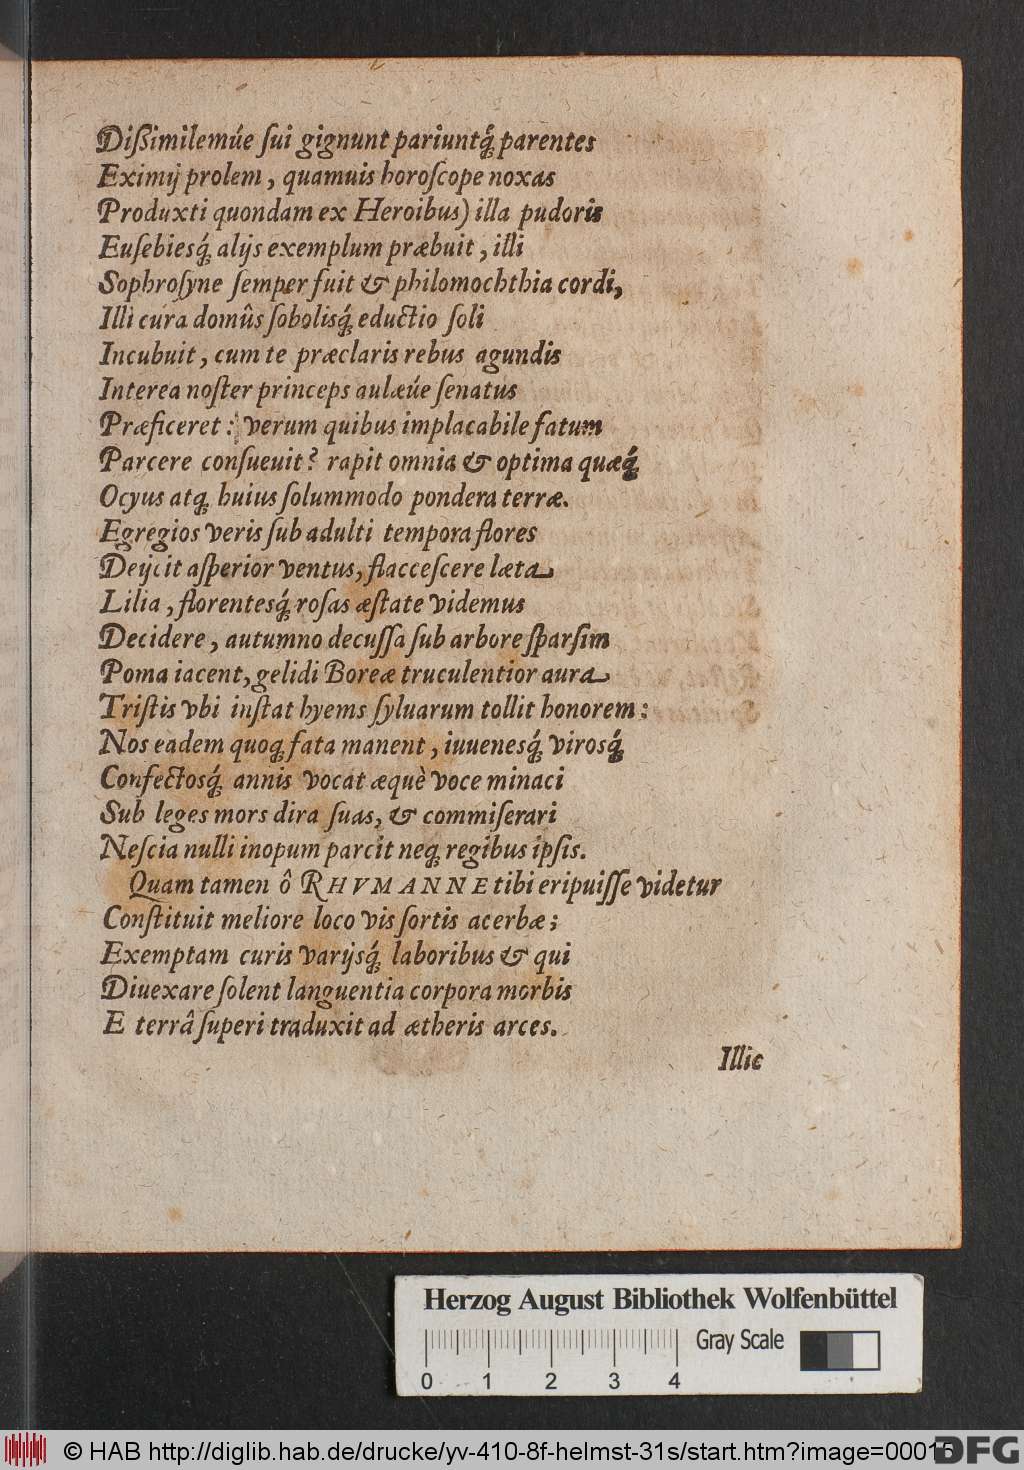 Dißimilemúe ſui gignunt pariuntq́; parentes
Eximij prolem, quamuis horoſcope noxas
Produxti quondam ex Heroibus) illa pudoris
Euſebiesq́; alijs exemplum præbuit, illi
Sophroſyne ſemper fuit & philomochthia cordi,
Illi cura domûs ſobolisq́; eductio ſoli
Incubuit, cum te præclaris rebus agundis
Interea noſter princeps aulæúe ſenatus
Præficeret: verum quibus implacabile fatum
Parcere conſueuit? rapit omnia & optima quæq́;
Ocyus atq; huius ſolummodo pondera terræ.
Egregios veris ſub adulti tempora flores
Deijcit aſperior ventus, flacceſcere læta
Lilia, florentesq́; roſas æſtate videmus
Decidere, autumno decuſſa ſub arbore ſparſim
Poma iacent, gelidi Boreæ truculentior aura
Triſtis vbi inſtat hyems ſyluarum tollit honorem:
Nos eadem quoq; fata manent, iuuenesq́; virosq́;
Confectosq́; annis vocat æquè voce minaci
Sub leges mors dira ſuas, & commiſerari
Neſcia nulli inopum parcit neq; regibus ipſis.
Quam tamen ô RHVMANNE tibi eripuiſſe videtur
Conſtituit meliore loco vis ſortis acerbæ;
Exemptam curis varijsq́; laboribus & qui
Diuexare ſolent languentia corpora morbis
E terrâ ſuperi traduxit ad ætheris arces.
Illic
Herzog August Bibliothek Wolfenbüttel
Gray Scale
0 1 2 3 4
© HAB http://diglib.hab.de/drucke/yv-410-8f-helmst-31s/start.htm?image=00015
DFG